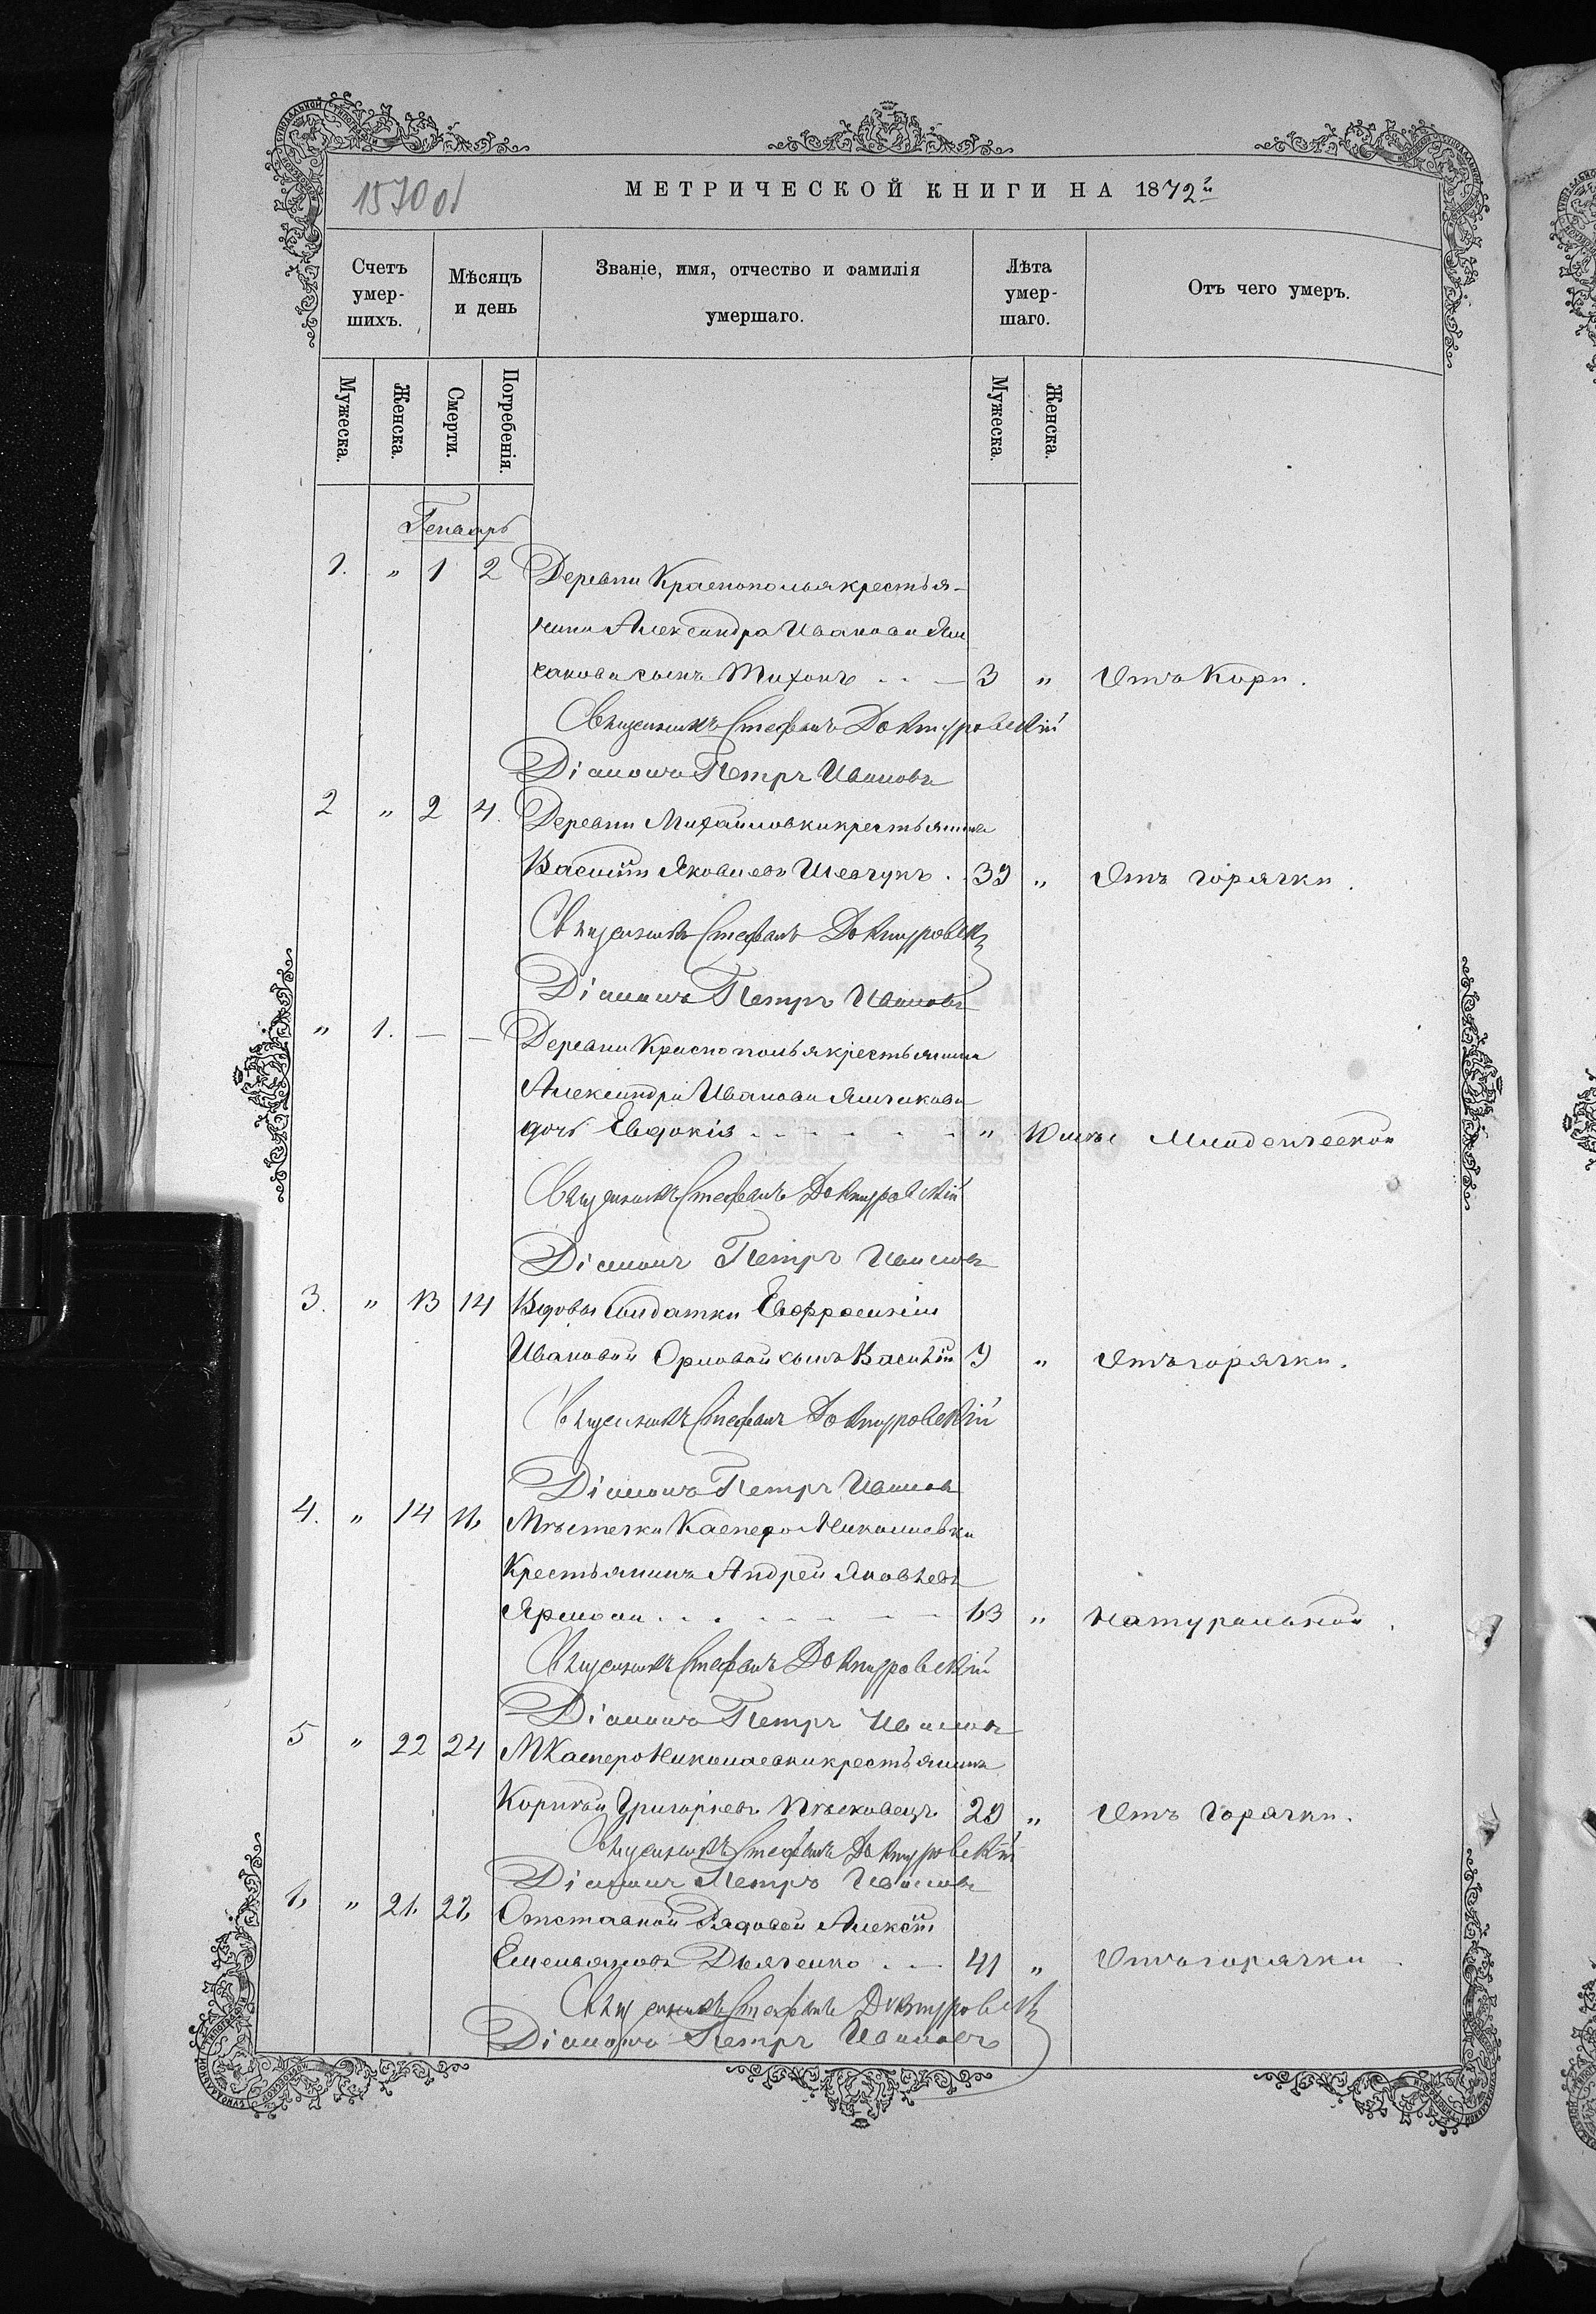 1570 об
МЕТРИЧЕСКОЙ КНИГИ НА 1872й
Счетъ умер-шихъ. Мѣсяцъ и день Званіе, имя, отчество и фамилія умершаго. Лѣта умер-шаго. Отъ чего умеръ.
Мужеска. Женска. Смерти. Погребенія. Мужеска. Женска.
Генварь
1. " 1 2 Деревни Краснополья крестья-
нина Александра Иванова
сынъ Тихонъ . . — 3 " Отъ Кори.
Священникъ Стефанъ Доктуровскій
Діаконъ Петръ Ивановъ
2 " 2 4. Деревни Михайловки крестьянинъ
Василій Яковлевъ Шевчукъ . 39 " Отъ горячки.
Священникъ Стефанъ Доктуровск
Діаконъ Петръ Ивановъ
" 1. — — Деревни Краснополья крестьянина
Александра Иванова
дочь Евдокія . - - - - . - " Младенческой
Священникъ Стефанъ Доктуровскій
Діаконъ Петръ Ивановъ
3. " 13 14 Вдовы Солдатки Евфросиніи
Ивановой Орловой сынъ Василій 9 " Отъ горячки.
Священникъ Стефанъ Доктуровскій
Діаконъ Петръ Ивановъ
4. " 14 16 Мѣстечка Касперо Николаевки
Крестьянинъ Андрей Яковлевъ
63 " Натуральной.
Священникъ Стефанъ Доктуровскій
Діаконъ Петръ Ивановъ
5 " 22 24 М Касперо Николаевки крестьянинъ
Корнилій Григорьевъ 29 " Отъ горячки.
Священникъ Стефанъ Доктуровскій
Діаконъ Петръ Ивановъ
6 " 26 28 Отставной Рядовой Алексѣй
Емельяновъ Дьяченко . . — 41 " Отъ горячки.
Священникъ Стефанъ Доктуровск
Діаконъ Петръ Ивановъ